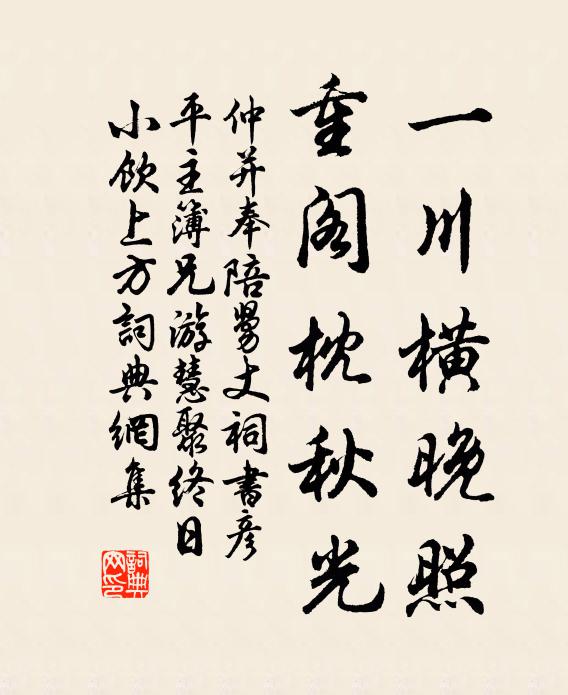 一川橫晚照
重阁枕秋光
仲并奉陪舅丈祠書彥
平主簿兄游慧聚终日
小飲上方詞典網集
詞典
网印